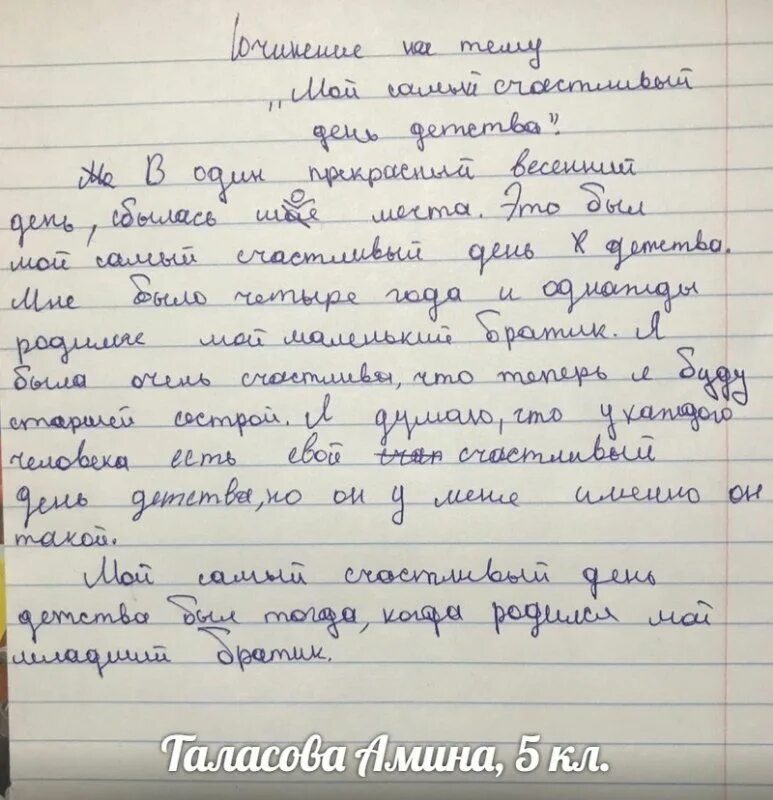 Сочинение на тему
„Мой самый счастливый
день детства".
В один прекрасный весенний
день, сбылась моя мечта. Это был
мой самый счастливый день детства.
Мне было четыре года и однажды
родился мой маленький братик. Я
была очень счастлива, что теперь я буду
старшей сестрой. Я думаю, что у каждого
человека есть свой счастливый
день детства, но он у меня именно он
такой.
Мой самый счастливый день
детства был тогда, когда родился мой
младший братик.
Таласова Амина, 5 кл.